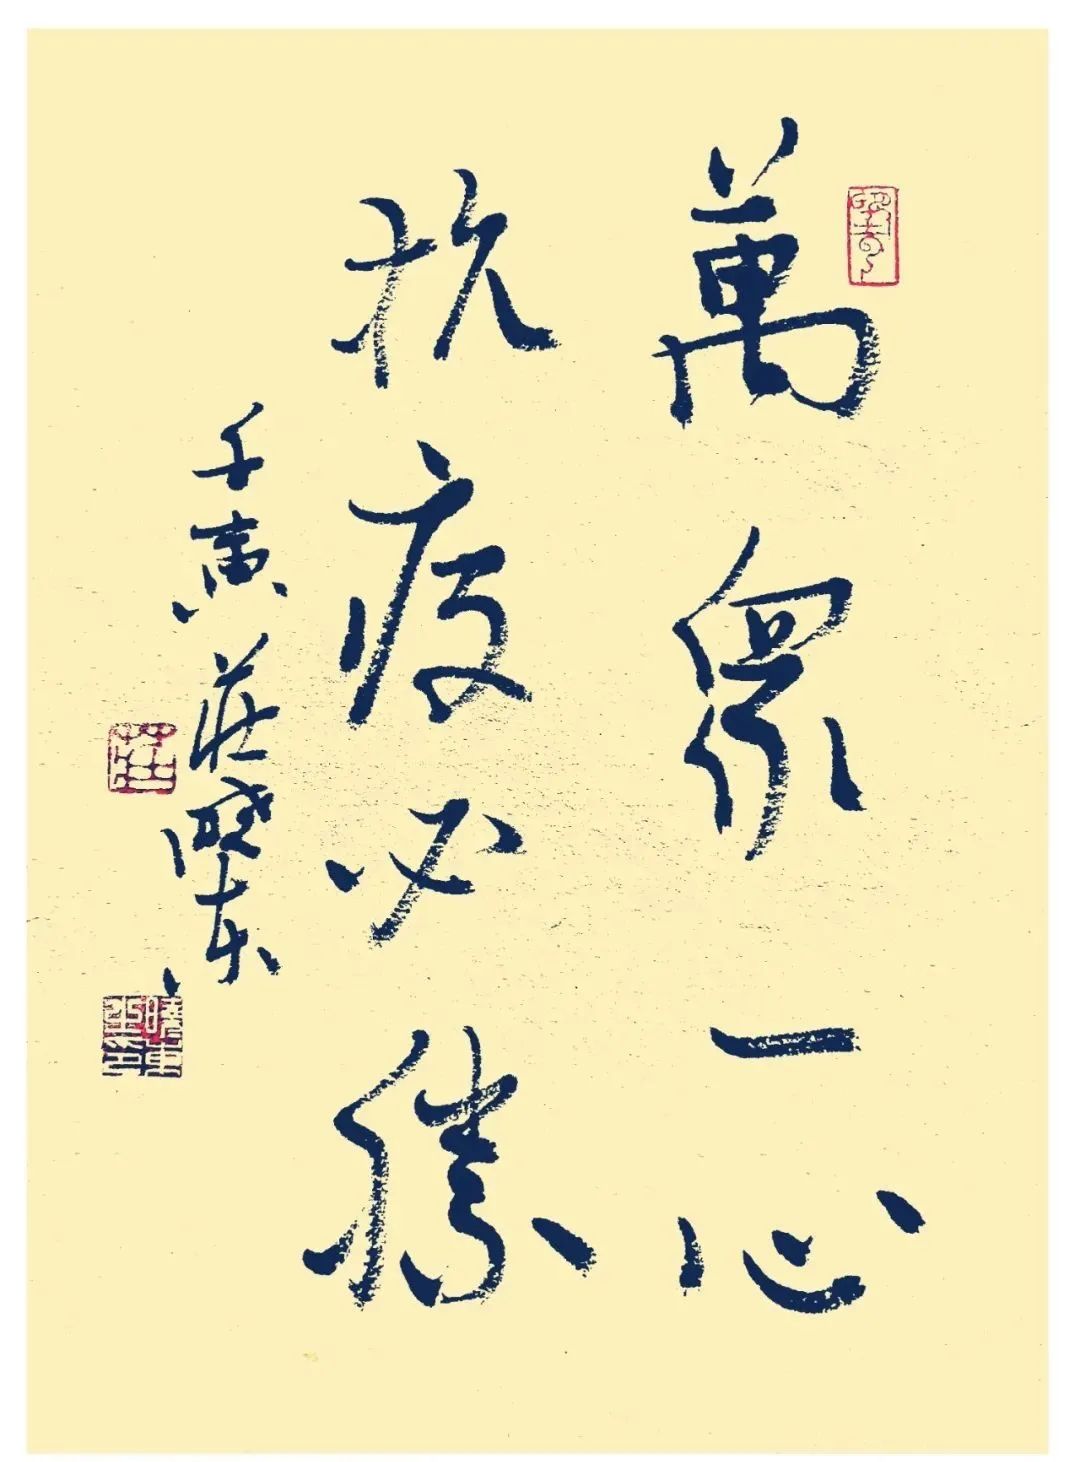 萬眾一心
抗疫必勝
壬寅莊曉东